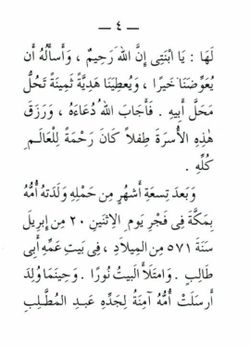 — ٤ —
لَهَا : يَا ابْنَتِى إِنَّ اللهَ رَحِيمٌ ، وَأَسْأَلُهُ أَنْ
يُعَوِّضَنَا خَيرًا ، وَيُعطِيَنَا هَدِيَّةً ثَمِينَةً تَحُلُّ
مَحَلَّ أَبِيهِ . فَأَجَابَ اللهُ دُعَاءَهُ ، وَرَزَقَ
هٰذِهِ الأُسرَةَ طِفلاً كَانَ رَحْمَةً لِلْعَالَمِ
كُلِّهِ .
وَبَعدَ تِسعَةِ أَشهُرٍ مِن حَمْلِهِ وَلَدَتهُ أُمُّهُ
بِمَكَّةَ فِى فَجْرِ يَومِ الإِثنَينِ ٢٠ مِن إِبرِيلَ
سَنَةَ ٥٧١ مِنَ المِيلَادِ ، فِى بَيتِ عَمِّهِ أَبِى
طَالِبٍ . وَامتَلَأَ البَيتُ نُورًا . وَحِينَمَا وُلِدَ
أَرسَلَتْ أُمُّهُ آمِنَةُ لِجَدِّهِ عَبدِ المُطَّلِبِ